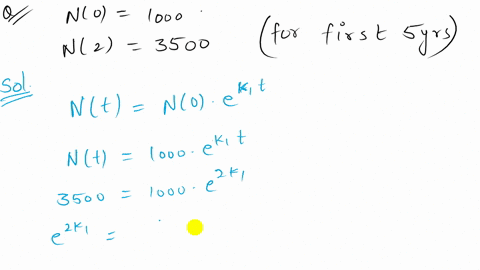 Q// N(0) = 1000
N(2) = 3500 (for first 5yrs)
Sol.
N(t) = N(0) · e^{K₁t}
N(t) = 1000 · e^{K₁t}
3500 = 1000 · e^{2K₁}
e^{2K₁} =